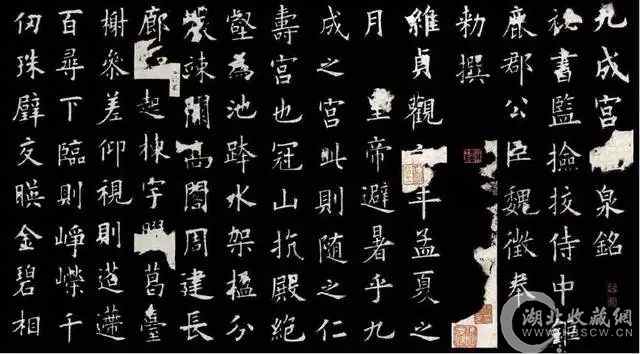 九成宮泉銘
秘書監撿挍侍中鉅
鹿郡公臣魏徵奉
勑撰
維貞觀年孟夏之
月 皇帝避暑乎九
成之宮此則隨之仁
壽宮也冠山抗殿絕
壑為池跨水架楹分
巖竦闕高閣周建長
廊起棟宇膠葛臺
榭參差仰視則迢遰
百尋下臨則崢嶸千
仞珠璧交暎金碧相
湖北收藏網